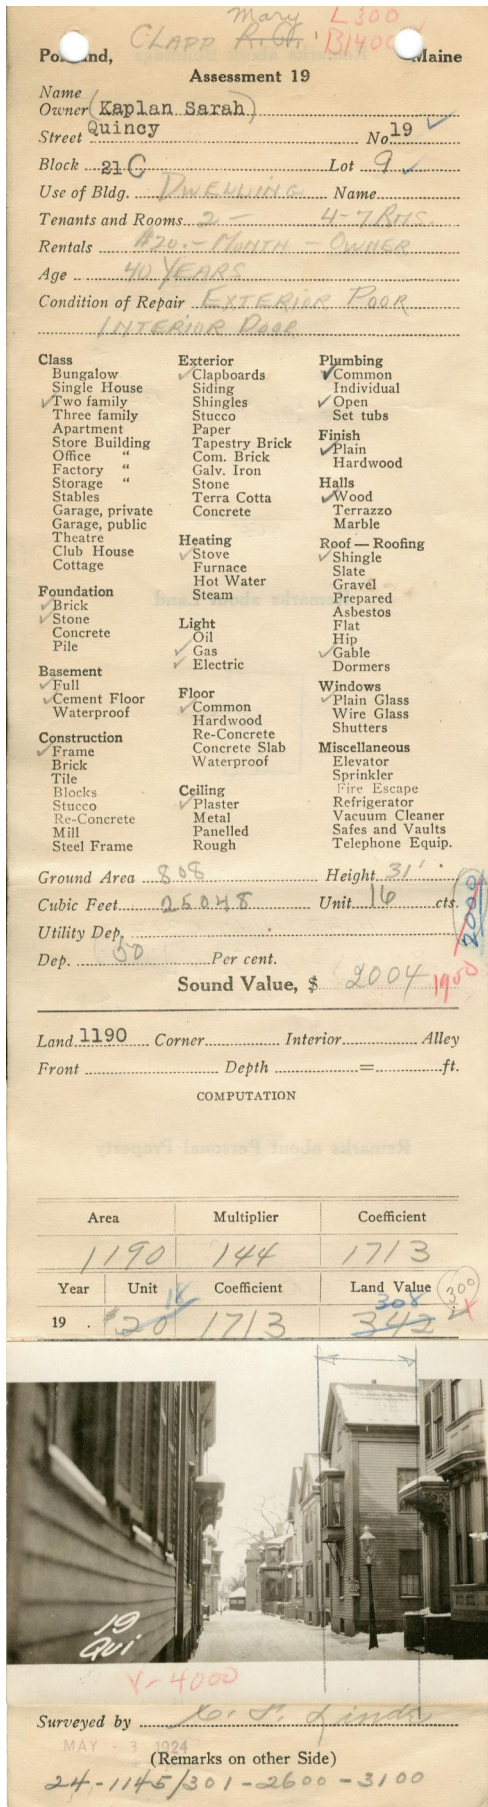 Mary L300
CLAPP R.G. B1400
Portland, Maine
Assessment 19
Name
Owner (Kaplan Sarah)
Street Quincy No. 19 ✓
Block 21 C Lot 9 ✓
Use of Bldg. DWELLING Name
Tenants and Rooms 2 - 4-7 RMS.
Rentals $20.- MONTH - OWNER
Age 40 YEARS
Condition of Repair EXTERIOR POOR
INTERIOR POOR
Class
Bungalow
Single House
✓ Two family
Three family
Apartment
Store Building
Office "
Factory "
Storage "
Stables
Garage, private
Garage, public
Theatre
Club House
Cottage
Foundation
✓ Brick
✓ Stone
Concrete
Pile
Basement
✓ Full
✓ Cement Floor
Waterproof
Construction
✓ Frame
Brick
Tile
Blocks
Stucco
Re-Concrete
Mill
Steel Frame
Exterior
✓ Clapboards
Siding
Shingles
Stucco
Paper
Tapestry Brick
Com. Brick
Galv. Iron
Stone
Terra Cotta
Concrete
Heating
✓ Stove
Furnace
Hot Water
Steam
Light
Oil
✓ Gas
✓ Electric
Floor
✓ Common
Hardwood
Re-Concrete
Concrete Slab
Waterproof
Ceiling
✓ Plaster
Metal
Panelled
Rough
Plumbing
✓ Common
Individual
✓ Open
Set tubs
Finish
✓ Plain
Hardwood
Halls
✓ Wood
Terrazzo
Marble
Roof — Roofing
✓ Shingle
Slate
Gravel
Prepared
Asbestos
Flat
Hip
✓ Gable
Dormers
Windows
✓ Plain Glass
Wire Glass
Shutters
Miscellaneous
Elevator
Sprinkler
Fire Escape
Refrigerator
Vacuum Cleaner
Safes and Vaults
Telephone Equip.
Ground Area 808 Height 31'
Cubic Feet 25048 Unit 16 cts.
2000
Utility Dep.
Dep. 50 Per cent.
Sound Value, $ 2004 1950
Land 1190 Corner Interior Alley
Front Depth = ft.
COMPUTATION
Remarks about Personal Property
Area Multiplier Coefficient
1190 144 1713
Year Unit Coefficient Land Value 300
18 308
19 . $20 1713 342
19
Qui
V-4000
Surveyed by
MAY - 3 1924
(Remarks on other Side)
24-1145/301-2600-3100